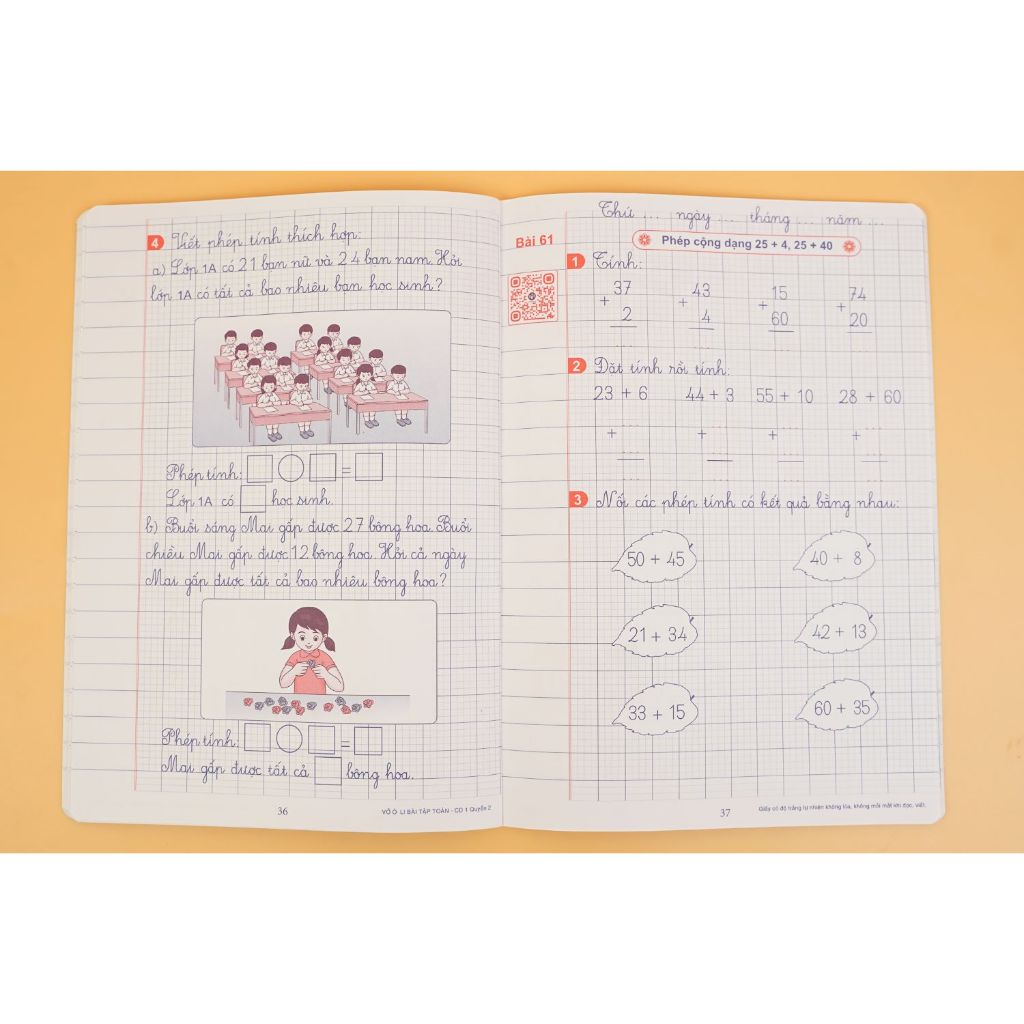 4 Viết phép tính thích hợp:
a) Lớp 1A có 21 bạn nữ và 24 bạn nam. Hỏi
lớp 1A có tất cả bao nhiêu bạn học sinh?
Phép tính: =
Lớp 1A có học sinh.
b) Buổi sáng Mai gấp được 27 bông hoa. Buổi
chiều Mai gấp được 12 bông hoa. Hỏi cả ngày
Mai gấp được tất cả bao nhiêu bông hoa?
Phép tính: =
Mai gấp được tất cả bông hoa.
36
VỞ Ô LI BÀI TẬP TOÁN - CD 1 Quyển 2
Thứ ... ngày ... tháng ... năm ...
Bài 61
Phép cộng dạng 25 + 4, 25 + 40
1 Tính:
37 43 15 74
+ + + +
2 4 60 20
2 Đặt tính rồi tính:
23 + 6 44 + 3 55 + 10 28 + 60
+ + + +
3 Nối các phép tính có kết quả bằng nhau:
50 + 45 40 + 8
21 + 34 42 + 13
33 + 15 60 + 35
37
Giấy có độ trắng tự nhiên không lóa, không mỏi mắt khi đọc, viết.